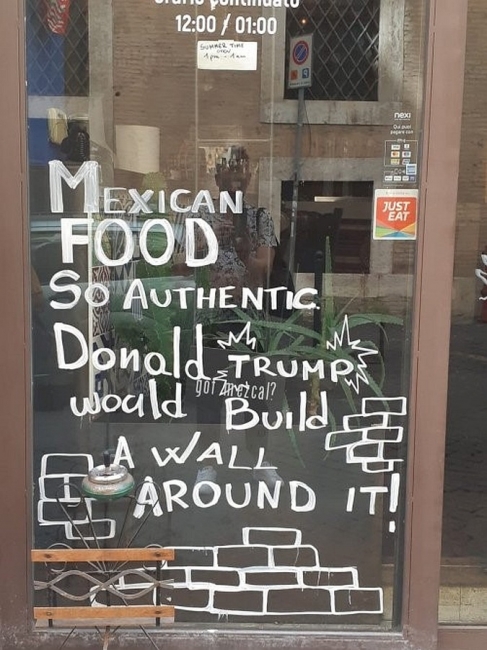 orario continuato
12:00 / 01:00
SUMMER TIME
OPEN
1pm - 1am
nexi
Qui puoi
pagare con
JUST
EAT
MEXICAN
FOOD
SO AUTHENTIC
Donald TRUMP
got mezcal?
would Build
A WALL
AROUND IT!